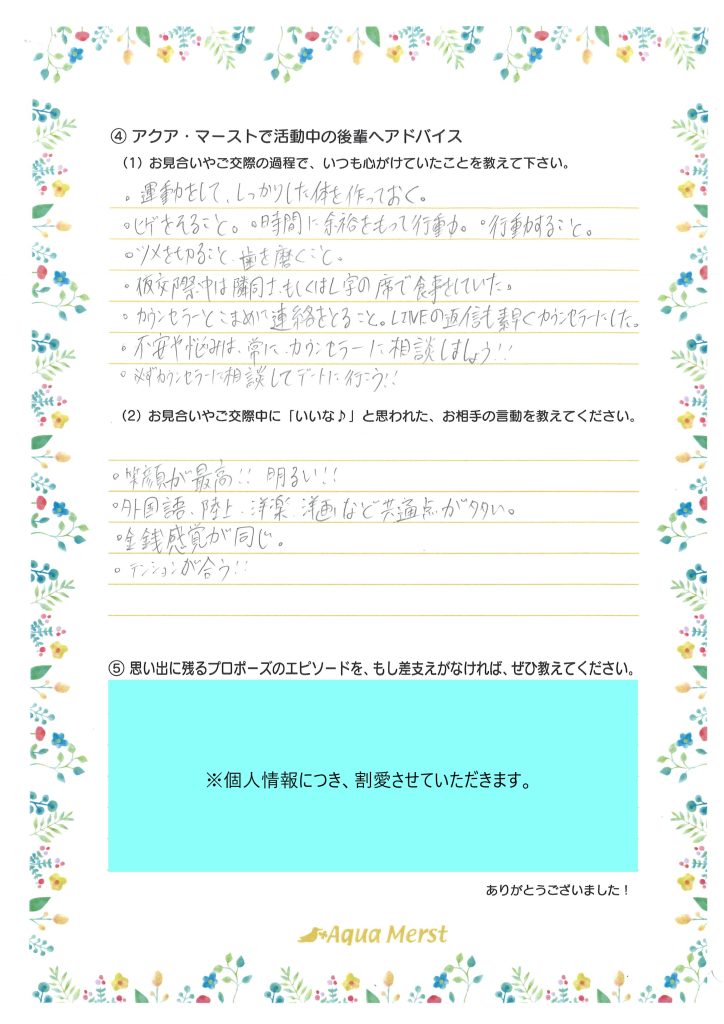 ④ アクア・マーストで活動中の後輩へアドバイス
(1) お見合いやご交際の過程で、いつも心がけていたことを教えて下さい。
。運動をして、しっかりした体を作っておく。
。ヒゲをそること。 。時間に余裕をもって行動。 。行動すること。
。ツメを切ること、歯を磨くこと。
。仮交際中は隣同士もしくはL字の席で食事をしていた。
。カウンセラーとこまめに連絡をとること。LINEの返信も素早くカウンセラーにした。
。不安や悩みは、常に、カウンセラーに相談しましょう!!
。必ずカウンセラーに相談してデートに行こう!!
(2) お見合いやご交際中に「いいな♪」と思われた、お相手の言動を教えてください。
。笑顔が最高!! 明るい!!
。外国語、陸上、洋楽、洋画など共通点が多い。
。金銭感覚が同じ。
。テンションが合う!!
⑤ 思い出に残るプロポーズのエピソードを、もし差支えがなければ、ぜひ教えてください。
※個人情報につき、割愛させていただきます。
ありがとうございました！
Aqua Merst